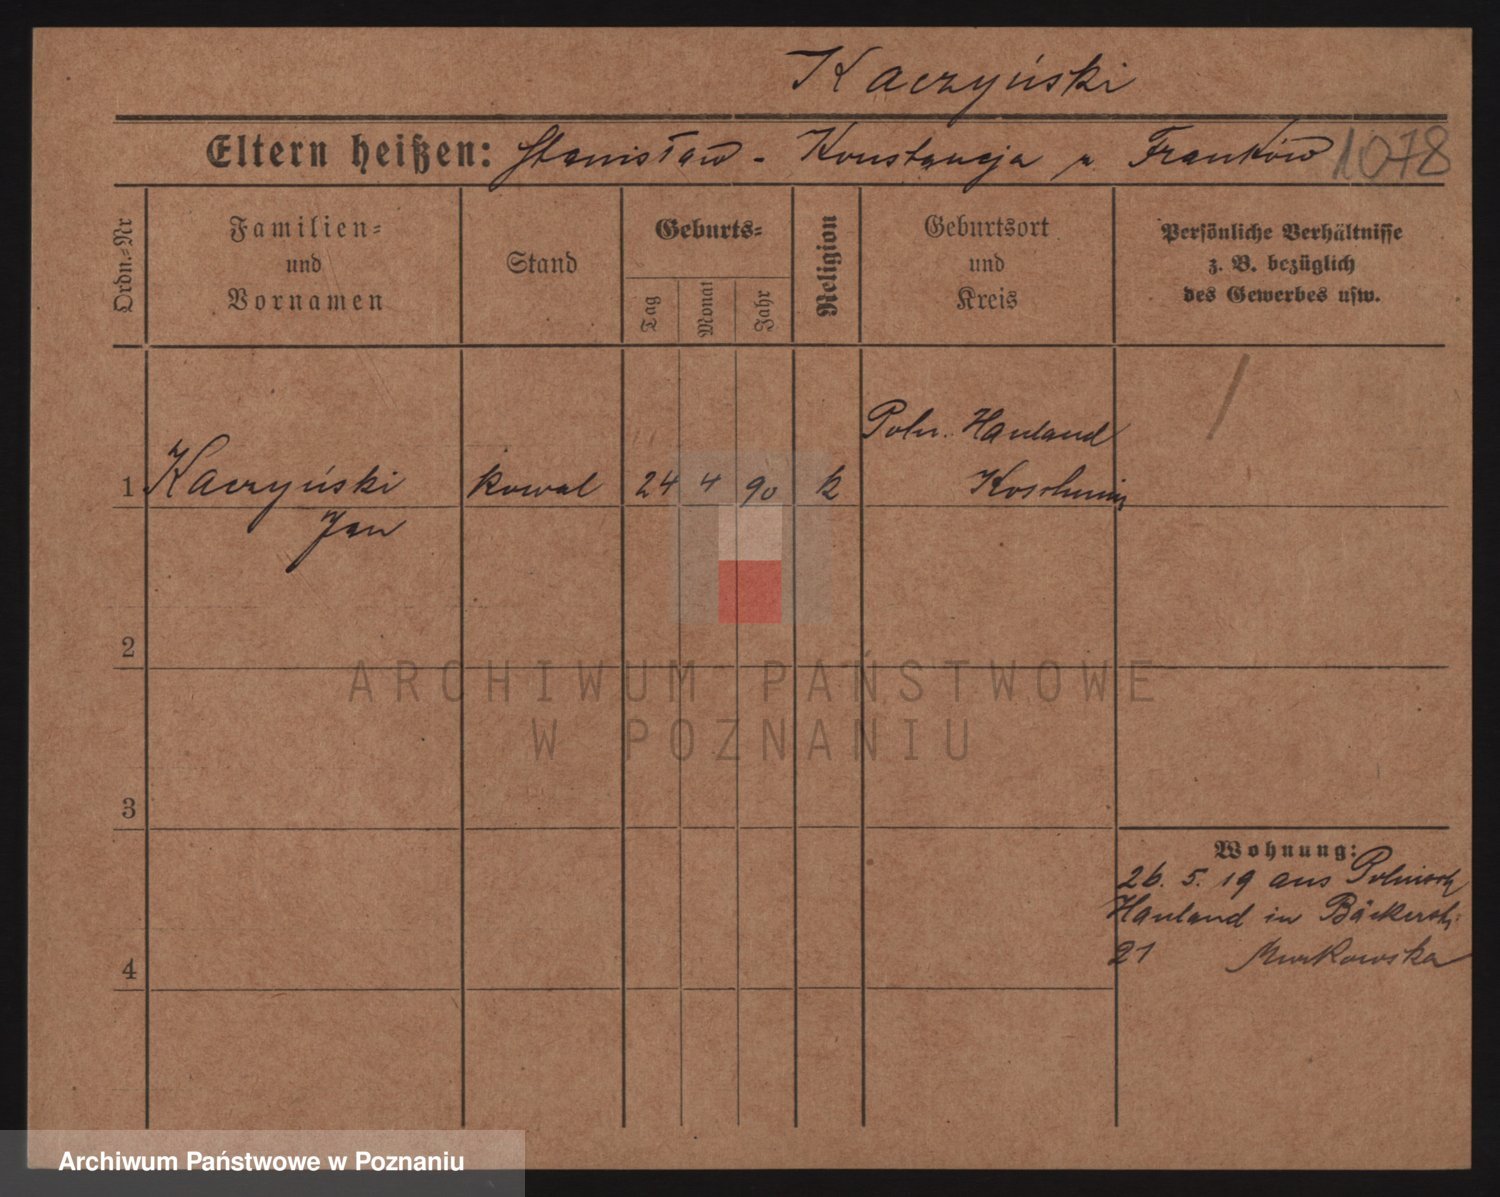 Kaczyński
Eltern heißen: Stanisław - Konstancja z Franków 1078
Ordn.-Nr
Familien-
und
Vornamen
Stand
Geburts-
Tag
Monat
Jahr
Religion
Geburtsort
und
Kreis
Persönliche Verhältnisse
z. B. bezüglich
des Gewerbes usw.
Poln. Hauland
1 Kaczyński kowal 24 4 90 k Koschmin
Jan
2
ARCHIWUM PAŃSTWOWE
W POZNANIU
3
Wohnung:
26. 5. 19 aus Polnisch
Hauland in Bäckerstr.
4
21 Murkowska
Archiwum Państwowe w Poznaniu